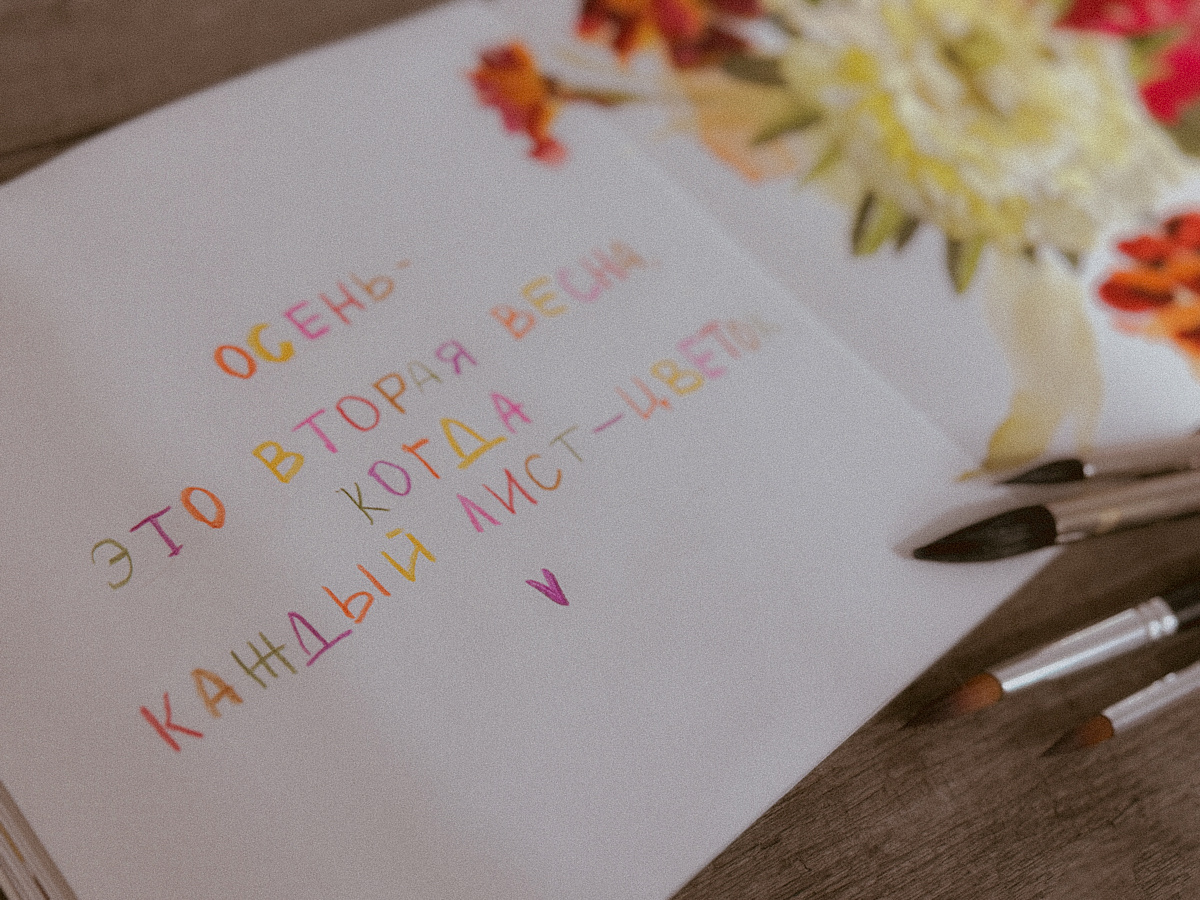 ОСЕНЬ-
ЭТО ВТОРАЯ ВЕСНА,
КОГДА
КАЖДЫЙ ЛИСТ-ЦВЕТОК